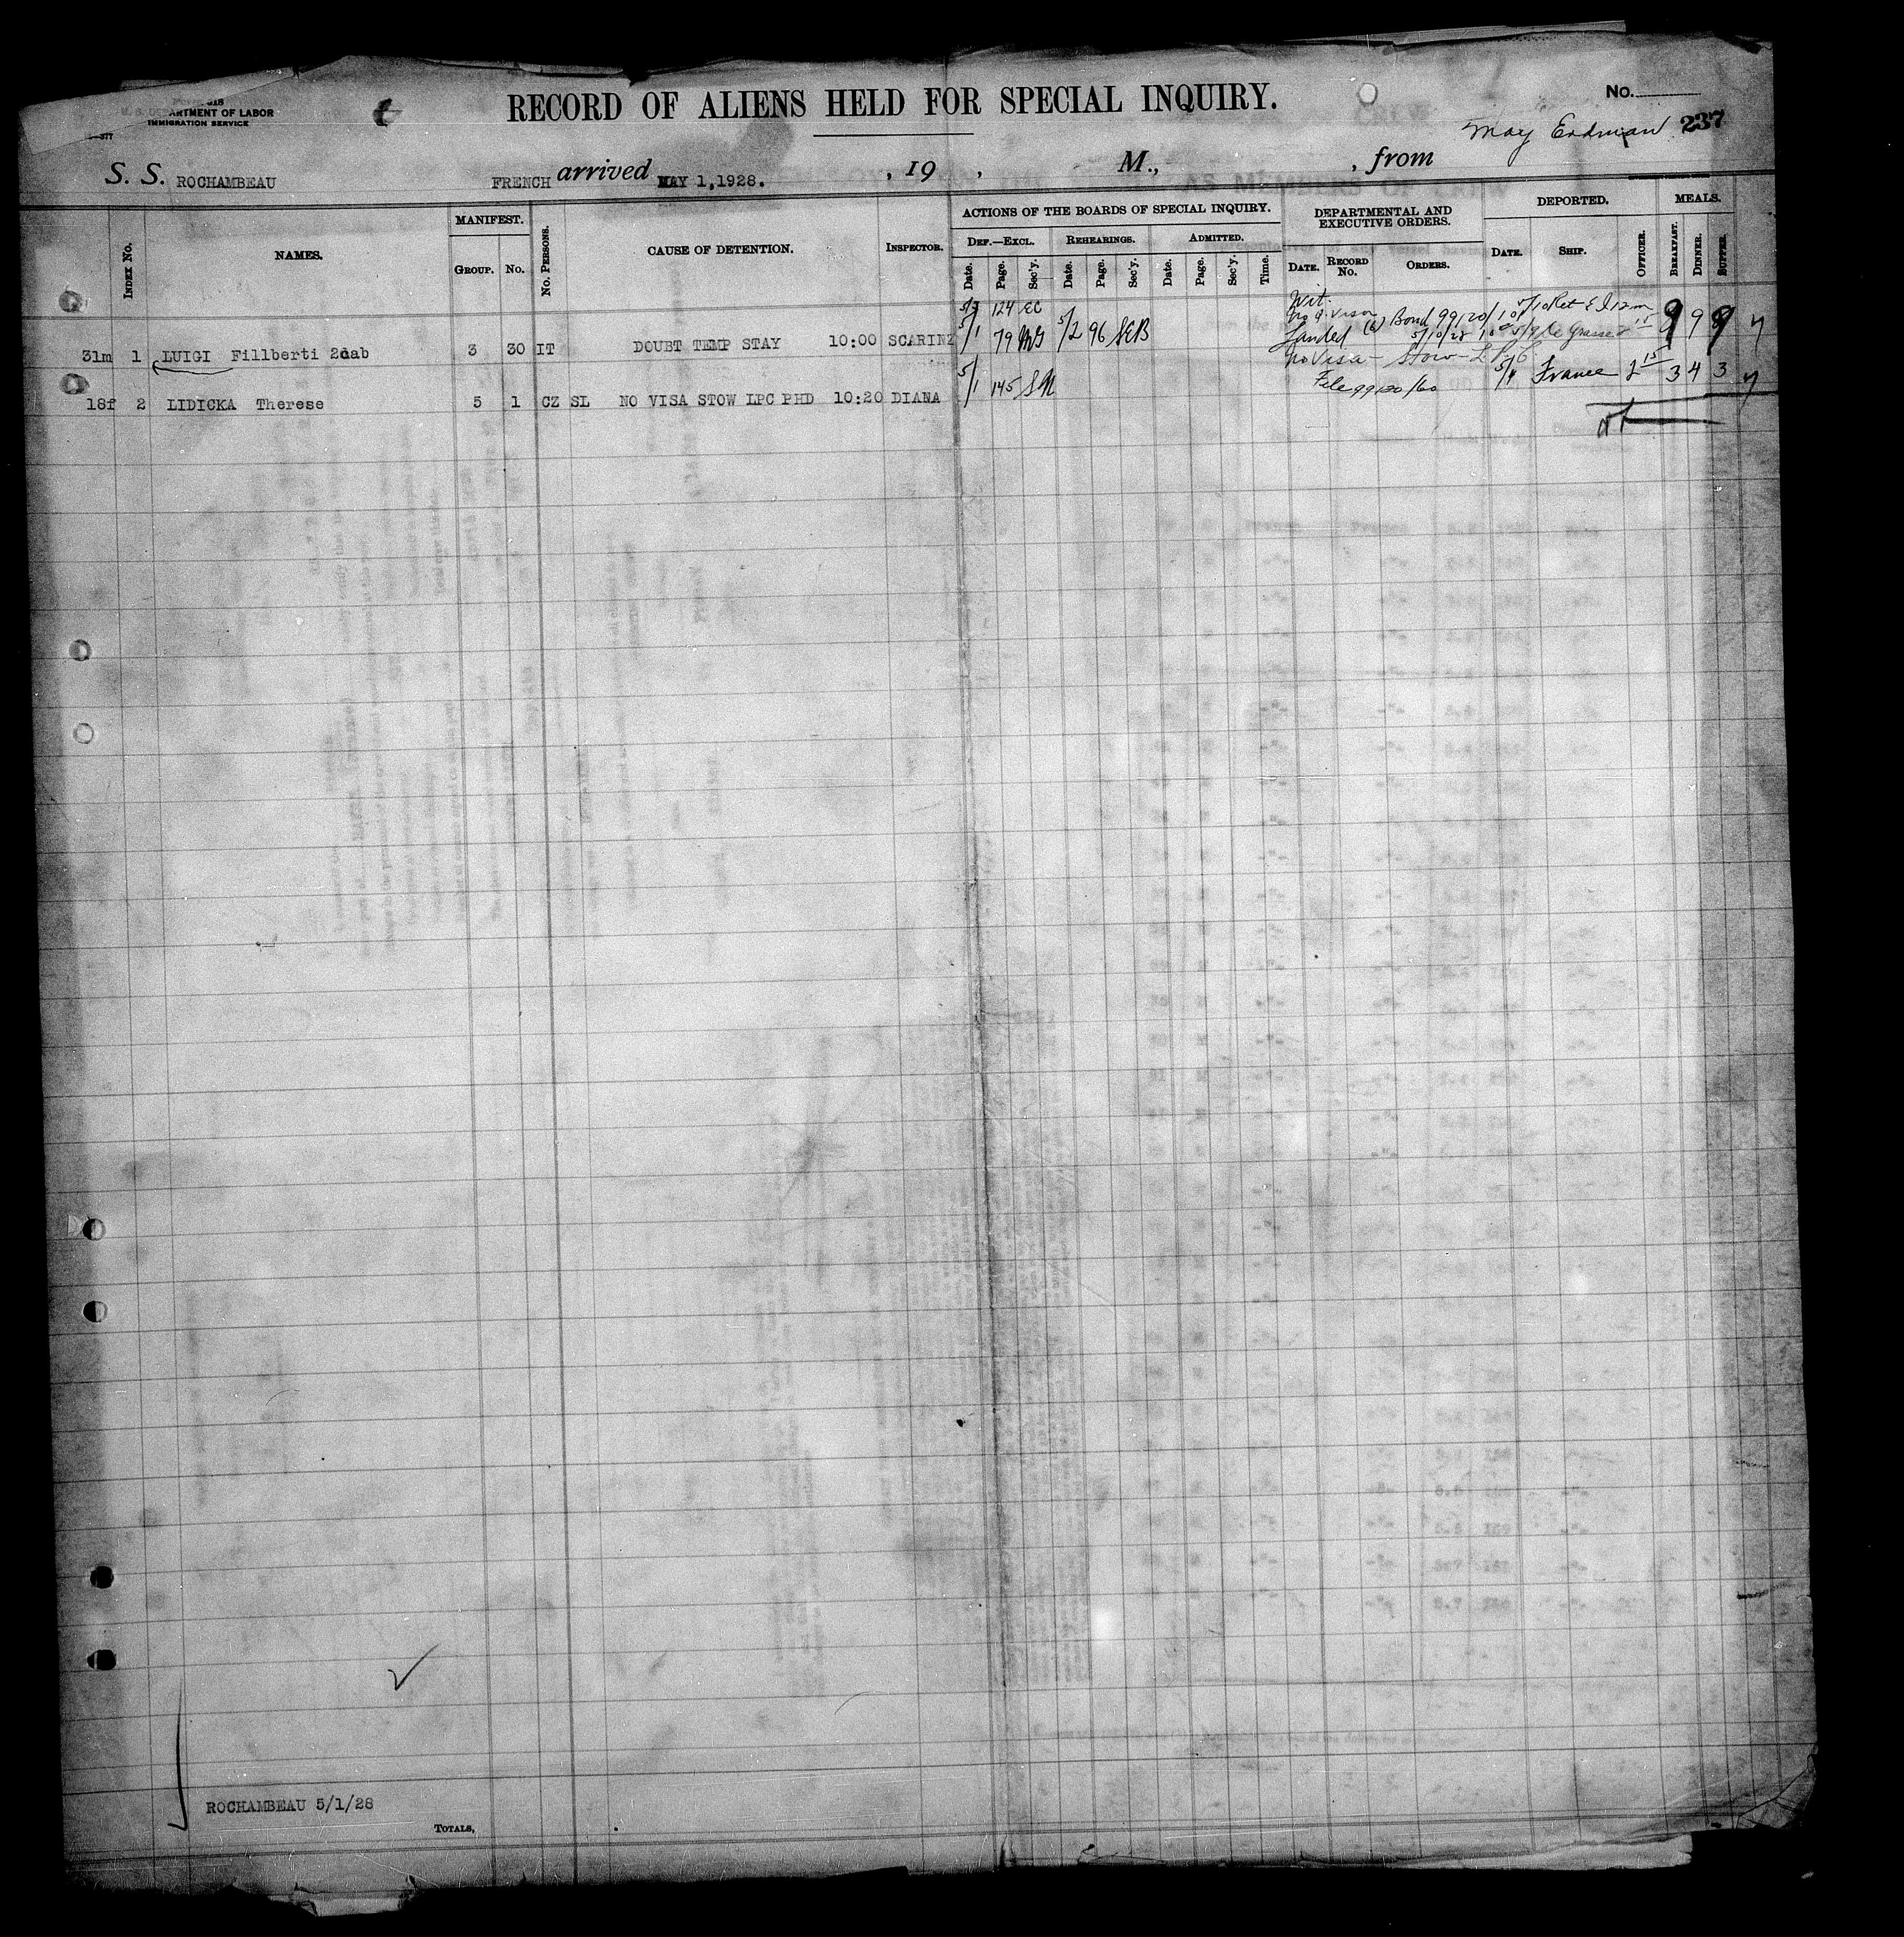 U. S. DEPARTMENT OF LABOR
IMMIGRATION SERVICE
RECORD OF ALIENS HELD FOR SPECIAL INQUIRY.
No.
May Erdman 237
S. S. ROCHAMBEAU FRENCH arrived MAY 1,1928. , 19 , M., , from
INDEX No.
NAMES.
MANIFEST.
GROUP. No.
No. PERSONS.
CAUSE OF DETENTION.
INSPECTOR.
ACTIONS OF THE BOARDS OF SPECIAL INQUIRY.
DEF.—EXCL. REHEARINGS. ADMITTED.
Date. Page. Sec'y. Date. Page. Sec'y. Date. Page. Sec'y. Time.
DEPARTMENTAL AND
EXECUTIVE ORDERS.
DATE. RECORD No. ORDERS.
DEPORTED.
DATE. SHIP. OFFICER.
MEALS.
BREAKFAST. DINNER. SUPPER.
124 EC
31m 1 LUIGI Fillberti 2dab 3 30 IT DOUBT TEMP STAY 10:00 SCARINZ 5/1 79 5/2 96 SEB Landed Bond 9 9 9
No Visa - Stow - L P C
18f 2 LIDICKA Therese 5 1 CZ SL NO VISA STOW LPC PHD 10:20 DIANA 5/1 145 SM File 99120/60 France 3 4 3
ROCHAMBEAU 5/1/28
TOTALS,